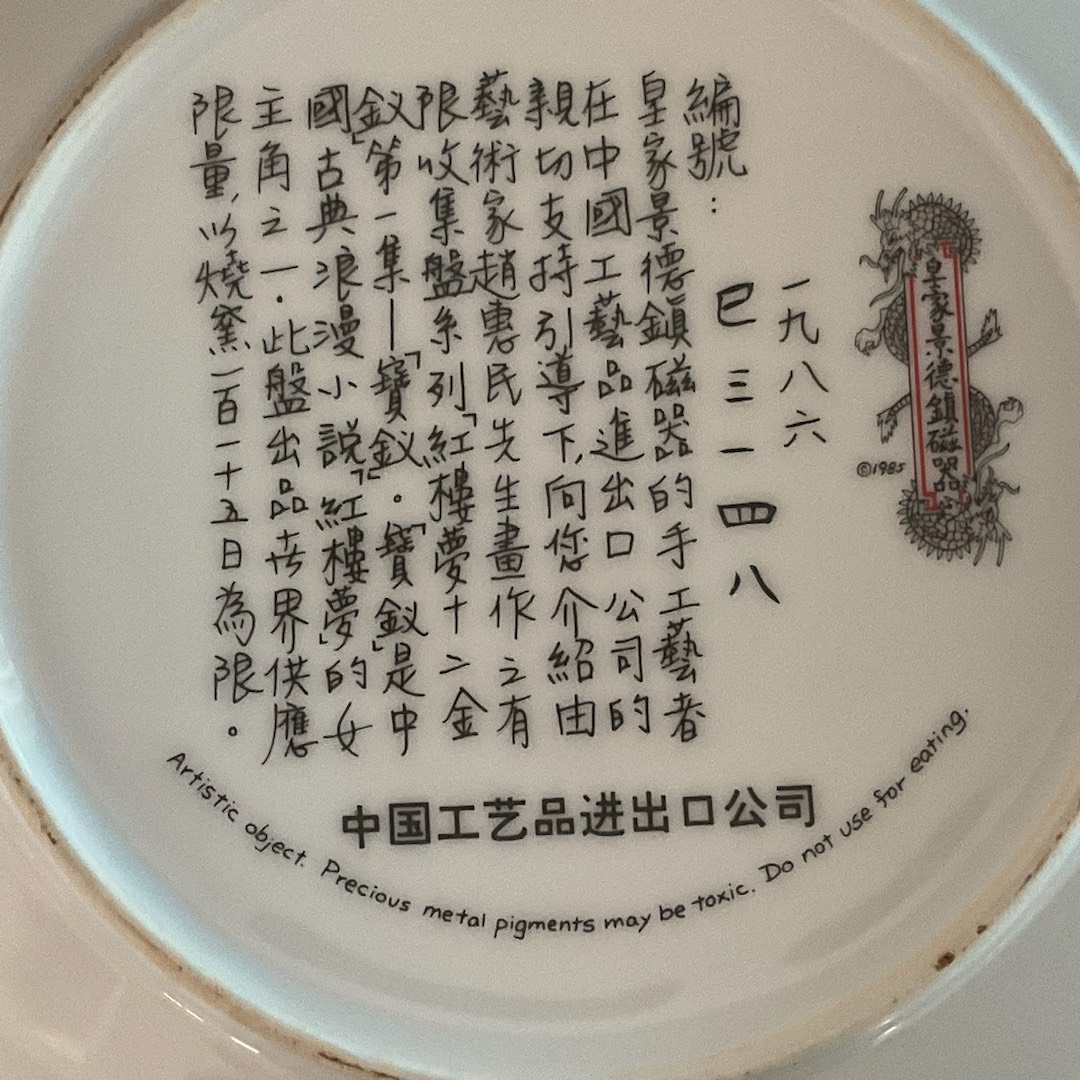 皇家景德鎮磁器
©1985
一九八六
編號：
巳三一四八
皇家景德鎮磁器的手工藝者
在中國工藝品進出口公司的
親切支持引導下，向您介紹由
藝術家趙惠民先生畫作之有
限收集盤系列「紅樓夢十二金
釵」第一集—「寶釵」。「寶釵」是中
國古典浪漫小說「紅樓夢」的女
主角之一．此盤出品在世界供應
限量，以燒窯一百一十五日為限。
中国工艺品进出口公司
Artistic object. Precious metal pigments may be toxic. Do not use for eating.